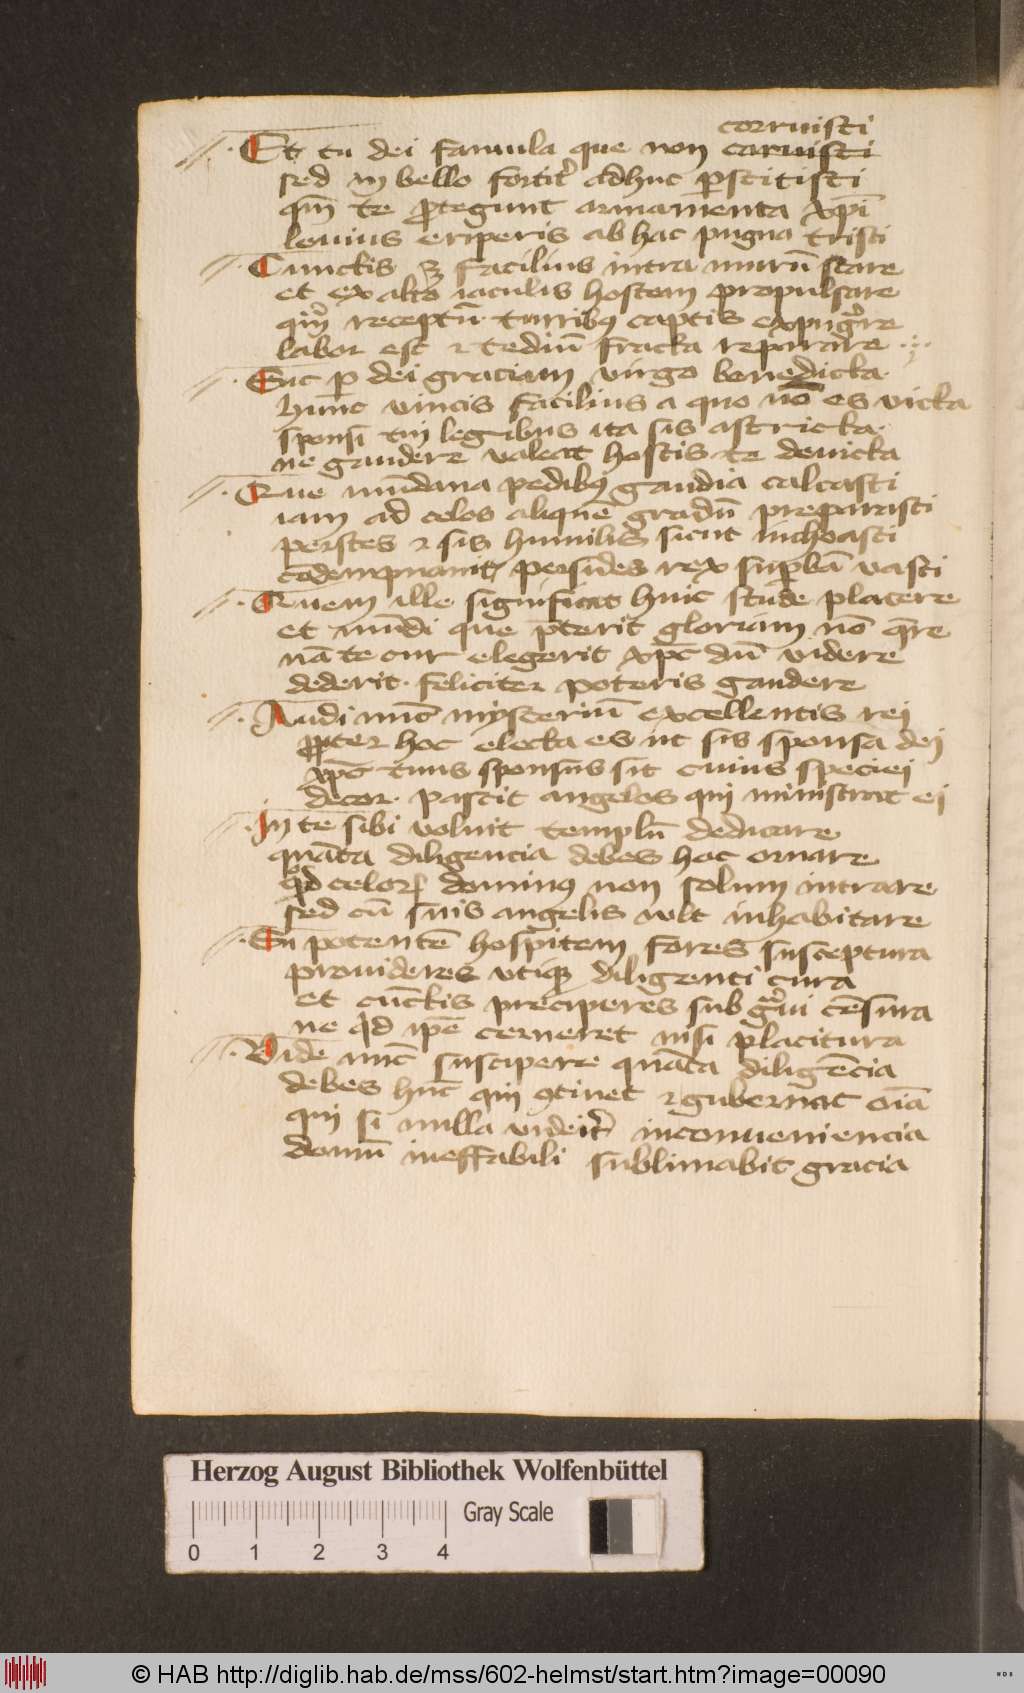 corruisti
Et tu dei famula que non caruisti
sed in bello fortit͛ adhuc ꝑstitisti
qm̄ te ꝓtegunt armamenta xp̄i
leuius eriperis ab hac pugna tristi
Cunctis facilius intra murū stare
et ex alto iaculis hostem propulsare
qm̄ receptū turribꝰ captis expugͣre
labor est ⁊ tediū fracta reparare
Tuc ꝑ dei graciam virgo benedicta
hunc vincis facilius a quo nō es victa
sponsi tui legibus ita sis astricta
ne gaudere valeat hostis te deuicta
Que mūdana pedibꝰ gaudia calcasti
iam ad celos alique gradū preparasti
perstes ⁊ sis humilis sicut inchoasti
rex suꝑbā vasti
Quem ille significat huic stude placere
et mūdi que p̄terit gloriam nō q̄rere
nā te cur elegerit xpc̄ dū videre
dederit feliciter poteris gaudere
Audi nūc mysteriū excellentis rei
ꝓpter hoc electa es ut sis sponsa dei
xpc̄ tuus sponsus sit cuius speciei
decor pascit angelos qui ministrāt ei
In te sibi voluit templū dedicare
quāta diligencia debes hoc ornare
qd̄ celoꝝ dominꝰ non solum intrare
sed cū suis angelis wlt inhabitare
Tu potentē hospitem fores susceptura
prouideres vtiqꝫ diligenti cura
et cūctis preciperes sub gͣui cēsura
ne qd̄ ip̄e cerneret nisi placitura
Vide nūc suscipere quāta diligēcia
debes hūc qui ꝯtinet ⁊ gubernat oīa
qui si nulla videit͛ inconueniencia
domū ineffabili sublimabit gracia
Herzog August Bibliothek Wolfenbüttel
Gray Scale
0 1 2 3 4
© HAB http://diglib.hab.de/mss/602-helmst/start.htm?image=00090